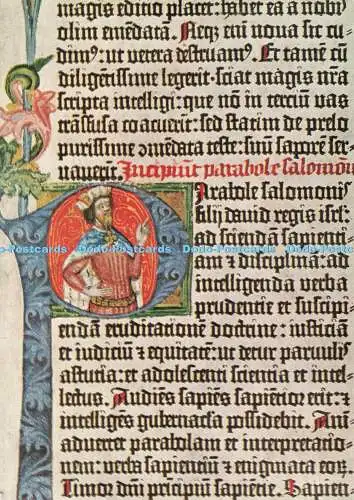 magis editio placet: habet ea a nobi
olim emēdatā. Neqʒ eni nova sic cu-
dim⁹: ut vetera destruam⁹. Et tamē cū
diligētissime legerit · sciat magis nr̄a
scripta intelligi: que nō in terciū vas
trāsfusa coacuerīt: sed statim de prelo
purissime ⁊mēdata teste: suū saporē ser-
vaverīt. Incipiūt parabole salomōis
Parabole salomonis
filij david regis isrl:
ad sciendā sapienti-
ā et disciplinā: ad
intelligenda verba
prudentie et suscipi-
endā eruditationē doctrine: iusticiā
et iudiciū ⁊ equitatē: ut detur parvulis
astucia: et adolescenti sciētia et intel-
lectus. Audiēs sapiēs sapiētior erit: ⁊
intelligēs gubernacla possidebit. Ani-
advertet parabolam et interpretatio-
nem: verba sapientiū et enigmata eoꝝ.
Timor dnī principiū sapiētie. Sapienti
Dodo-Postcards Dodo-Postcards Dodo-Postcards